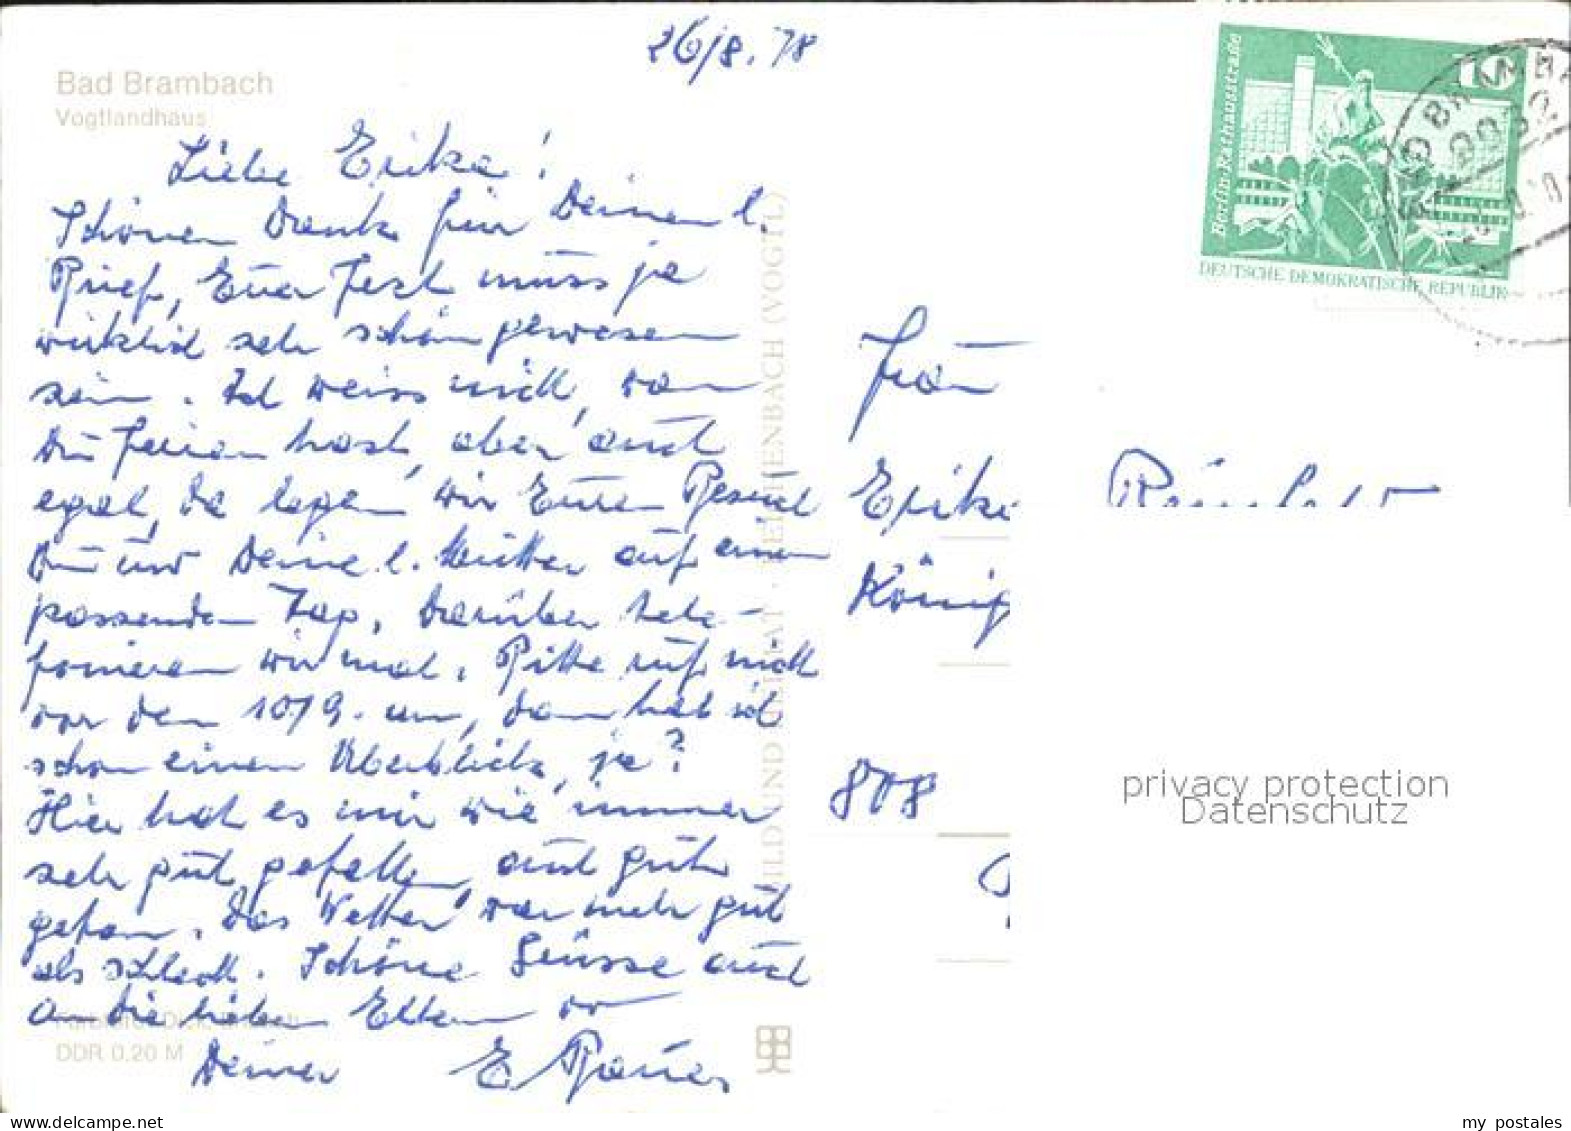 26/8.78
Bad Brambach
Vogtlandhaus
Liebe Erika!
Schönen Dank für Deinen l.
Brief, Euer Fest muss ja
wirklich sehr schön gewesen
sein. Ich weiss nicht, wann
Du Ferien hast, aber auch
egal, da legen wir Euren Besuch
Du und Deine l. Mutter auf einen
passenden Tag, darüber tele-
fonieren wir mal. Bitte ruf nicht
vor dem 10/9. an, dann hab ich
schon einen Überblick, ja?
Hier hat es mir wie immer
sehr gut gefallen, auch gut
getan. Das Wetter war mehr gut
als schlecht. Schöne Grüsse auch
an die lieben Eltern von
Deiner E.
DDR 0.20 M
BILD UND HEIMAT · REICHENBACH (VOGTL)
Berlin-Rathausstraße
10
DEUTSCHE DEMOKRATISCHE REPUBLIK
BAD BRAMBA
9932
Frau
Erika
König
808
privacy protection
Datenschutz
my postales